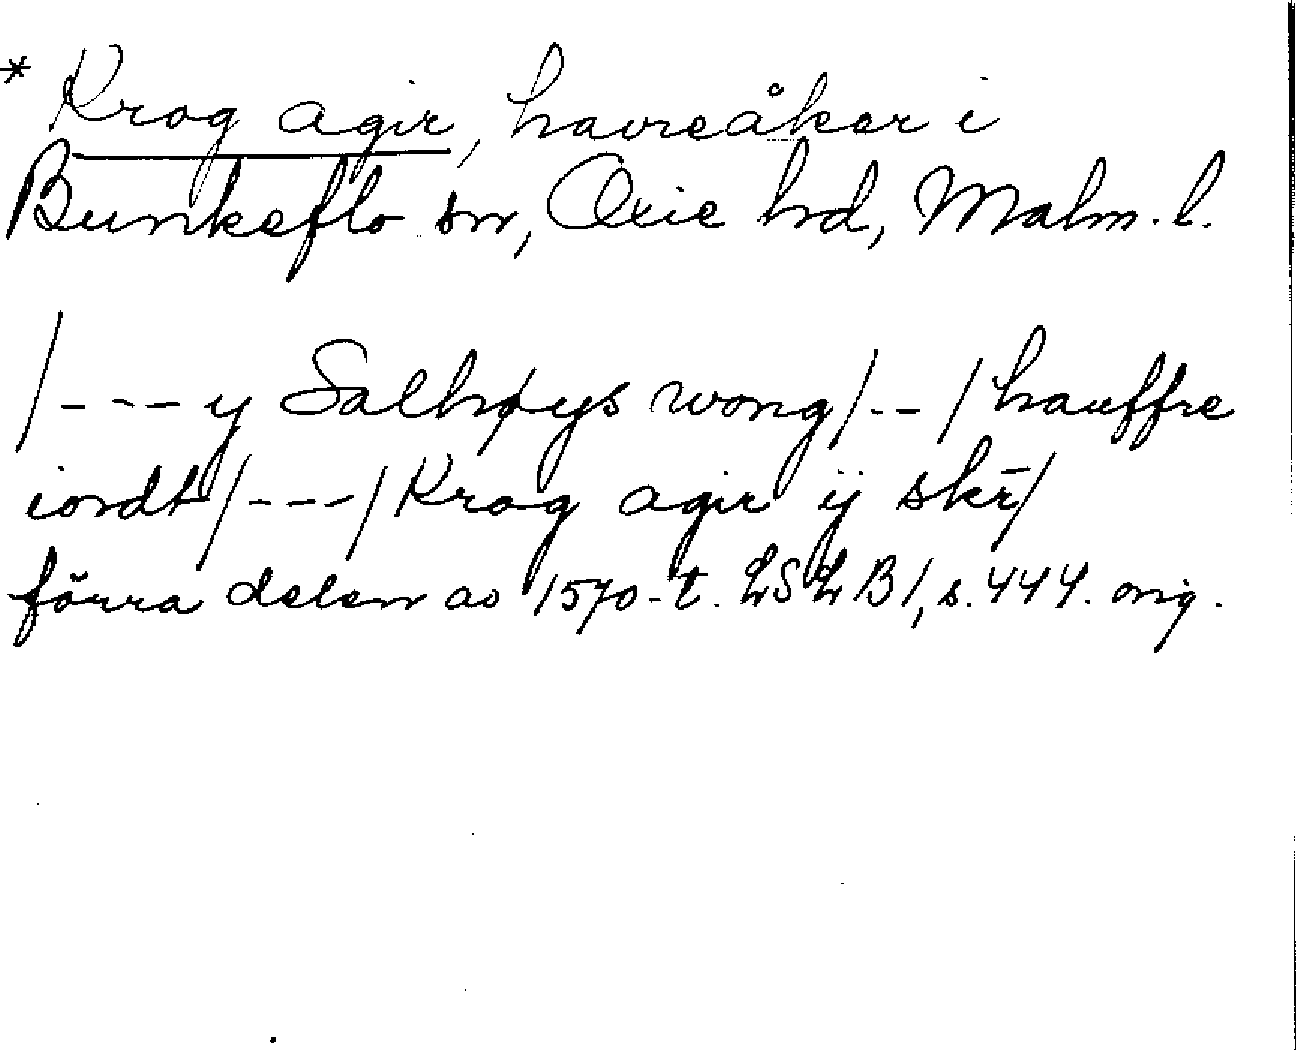 * Krog agir, havreåker i
Bunkeflo sn, Oxie hrd, Malm. l.
/---y Salhøys wong/--/hauffre
iordt/---/Krog agir ij skr/
förra delen av 1570-t. LSLB1, s. 444. orig.